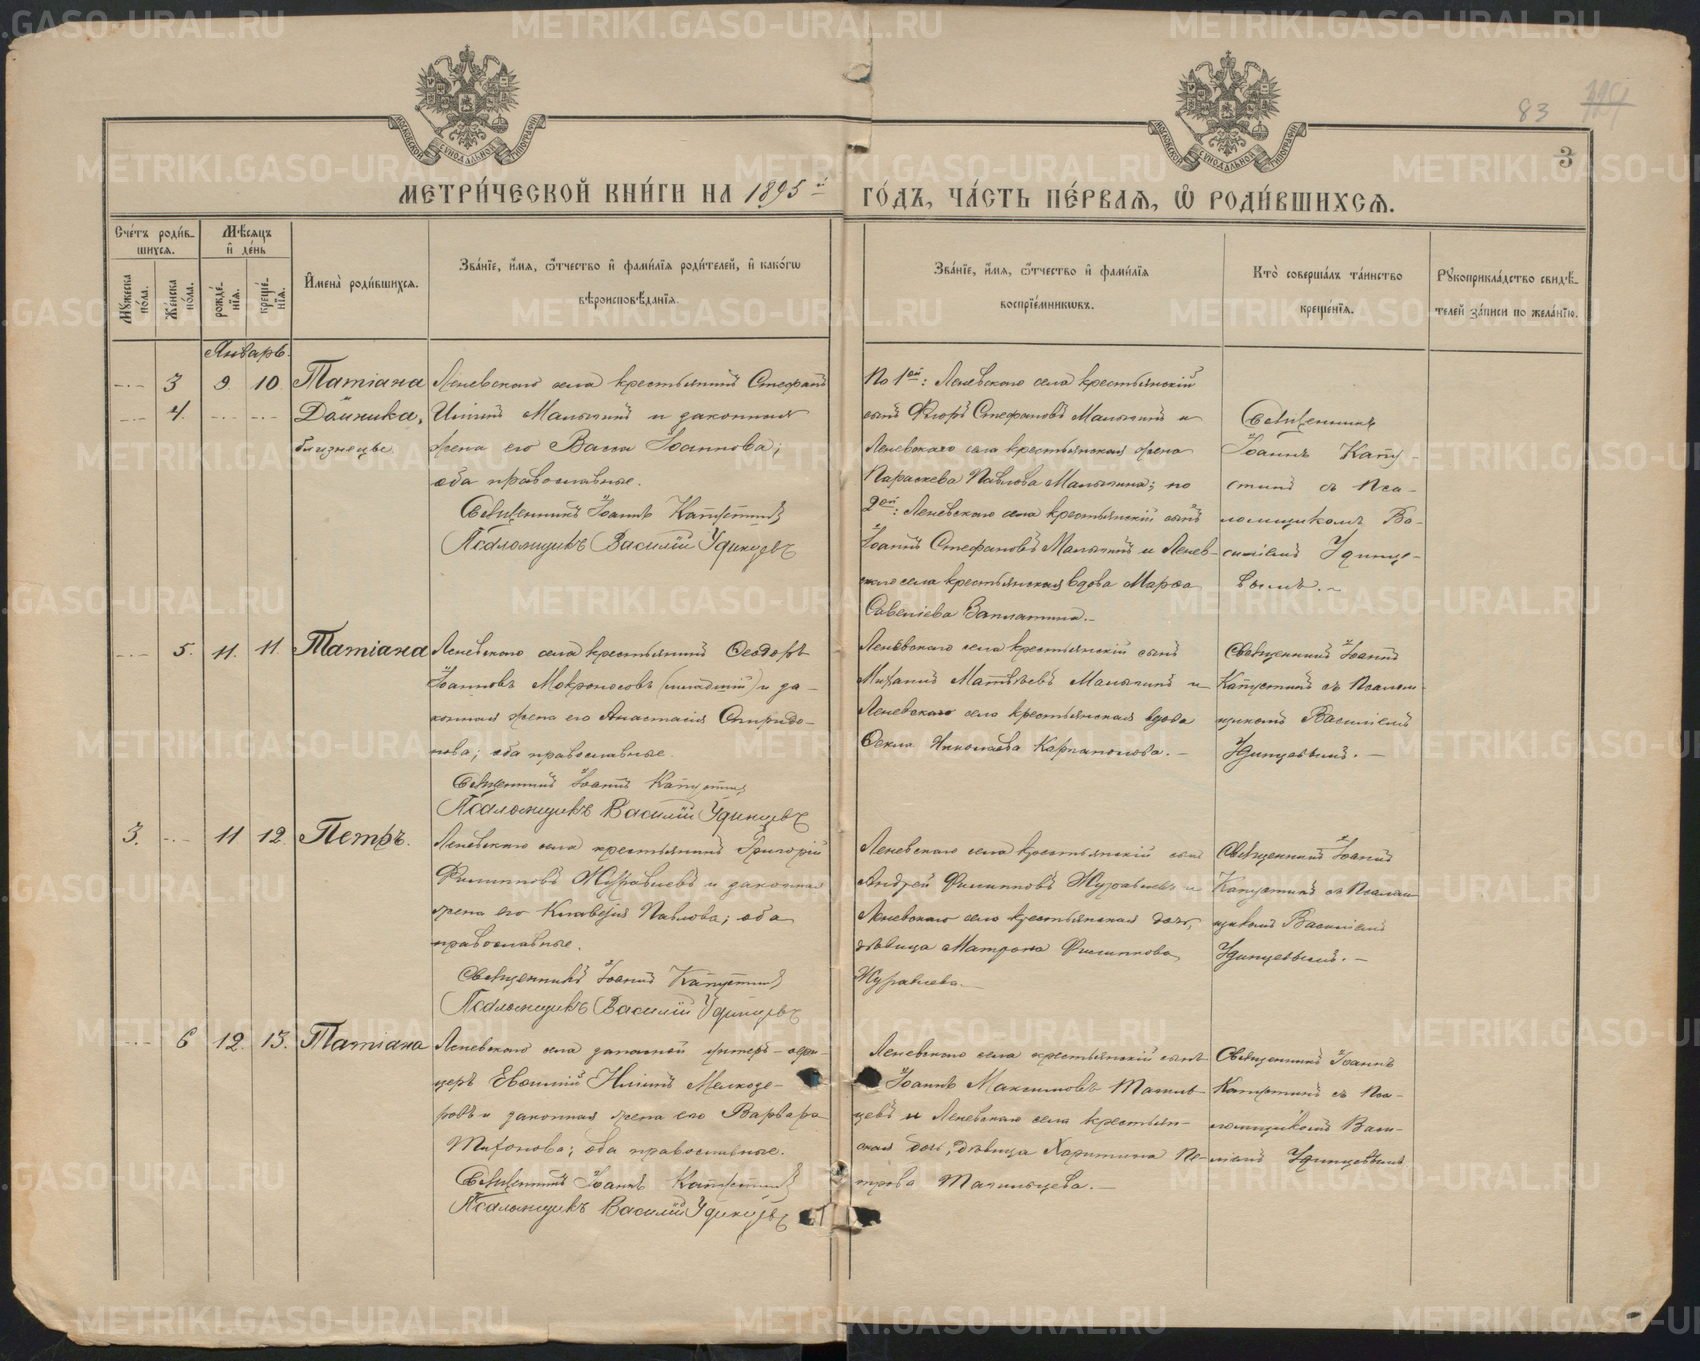 83
3
МЕТРИ́ЧЕСКОЙ КНИ́ГИ НА 1895й ГО́ДЪ, ЧА́СТЬ ПЕ́РВАѦ, Ѡ҆ РОДИ́ВШИХСѦ.
Счéтъ роди́в-
шихсѧ.
Мꙋ́жеска по́ла.
Же́нска по́ла.
Мѣ́сѧцъ
и҆ де́нь
рожде́-
нїѧ.
креще́-
нїѧ.
И҆мена̀ роди́вшихсѧ.
Зва́нїе, и҆́мѧ, ѻ҆́тчество и҆ фами́лїѧ роди́телей, и҆ како́гѡ
вѣроисповѣ́данїѧ.
Зва́нїе, и҆́мѧ, ѻ҆́тчество и҆ фами́лїѧ
воспрїе́мникѡвъ.
Кто̀ соверша́лъ та́инство
креще́нїѧ.
Рꙋкоприкла́дство свидѣ́-
телей за́писи по жела́нїю.
Январь.
3 9. 10. Татiана
4. Домника,
близнецы.
Леневскаго села крестьянинъ Стефанъ
Ильинъ Малыгинъ и законная
жена его Васса Iоаннова;
оба православные.
Священникъ Iоаннъ Капустинъ
Псаломщикъ Василiй Удинцевъ
По 1ей: Леневскаго села крестьянскiй
сынъ Флоръ Стефановъ Малыгинъ и
Леневскаго села крестьянская жена
Параскева Павлова Малыгина; по
2ей: Леневскаго села крестьянскiй сынъ
Iоаннъ Стефановъ Малыгинъ и Ленев-
скаго села крестьянская вдова Марѳа
Савелiева Заплатина.
Священникъ
Iоаннъ Капу-
стинъ съ Пса-
ломщикомъ Ва-
силiемъ Удинце-
вымъ.
5. 11. 11. Татiана
Леневскаго села крестьянинъ Ѳеодоръ
Iоанновъ Мокроносовъ (младшiй) и за-
конная жена его Анастасiя Спиридо-
нова; оба православные.
Священникъ Iоаннъ Капустинъ
Псаломщикъ Василiй Удинцевъ
Леневскаго села крестьянскiй сынъ
Михаилъ Матвѣевъ Малыгинъ и
Леневскаго села крестьянская вдова
Ѳекла Николаева Карпаполова.
Священникъ Iоаннъ
Капустинъ съ Псалом-
щикомъ Василiемъ
Удинцевымъ.
3. 11 12. Петръ.
Леневскаго села крестьянинъ Григорiй
Филипповъ Журавлевъ и законная
жена его Клавдiя Павлова; оба
православные.
Священникъ Iоаннъ Капустинъ
Псаломщикъ Василiй Удинцевъ
Леневскаго села крестьянскiй сынъ
Андрей Филипповъ Журавлевъ и
Леневскаго села крестьянская дочь,
дѣвица Матрона Филиппова
Журавлева.
Священникъ Iоаннъ
Капустинъ съ Псалом-
щикомъ Василiемъ
Удинцевымъ.
6 12. 13. Татiана
Леневскаго села запасной унтеръ-офи-
церъ Евѳимiй Ильинъ Мелкозе-
ровъ и законная жена его Варвара
Тихонова; оба православные.
Священникъ Iоаннъ Капустинъ
Псаломщикъ Василiй Удинцевъ
Леневскаго села крестьянскiй сынъ
Iоаннъ Максимовъ Тагиль-
цевъ и Леневскаго села крестьян-
ская дочь, дѣвица Харитина Пе-
трова Тагильцева.
Священникъ Iоаннъ
Капустинъ съ Пса-
ломщикомъ Васи-
лiемъ Удинцевымъ
METRIKI.GASO-URAL.RU